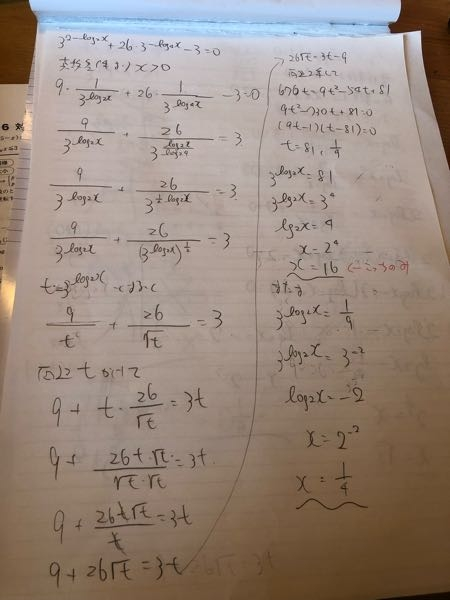 3^{2-log₂x} + 26・3^{-log₄x} - 3 = 0
真数条件より x > 0
9・1/3^{log₂x} + 26・1/3^{log₄x} - 3 = 0
9/3^{log₂x} + 26/3^{log₂x/log₂4} = 3
9/3^{log₂x} + 26/3^{½log₂x} = 3
9/3^{log₂x} + 26/(3^{log₂x})^{½} = 3
t = 3^{log₂x} とおくと
9/t + 26/√t = 3
両辺 t かけて
9 + t・26/√t = 3t
9 + 26t・√t/√t・√t = 3t
9 + 26t√t/t = 3t
9 + 26√t = 3t
26√t = 3t - 9
両辺2乗して
676t = 9t² - 54t + 81
9t² - 730t + 81 = 0
(9t-1)(t-81) = 0
t = 81, 1/9
3^{log₂x} = 81
3^{log₂x} = 3⁴
log₂x = 4
x = 2⁴
x = 16
3^{log₂x} = 1/9
3^{log₂x} = 3^{-2}
log₂x = -2
x = 2^{-2}
x = 1/4